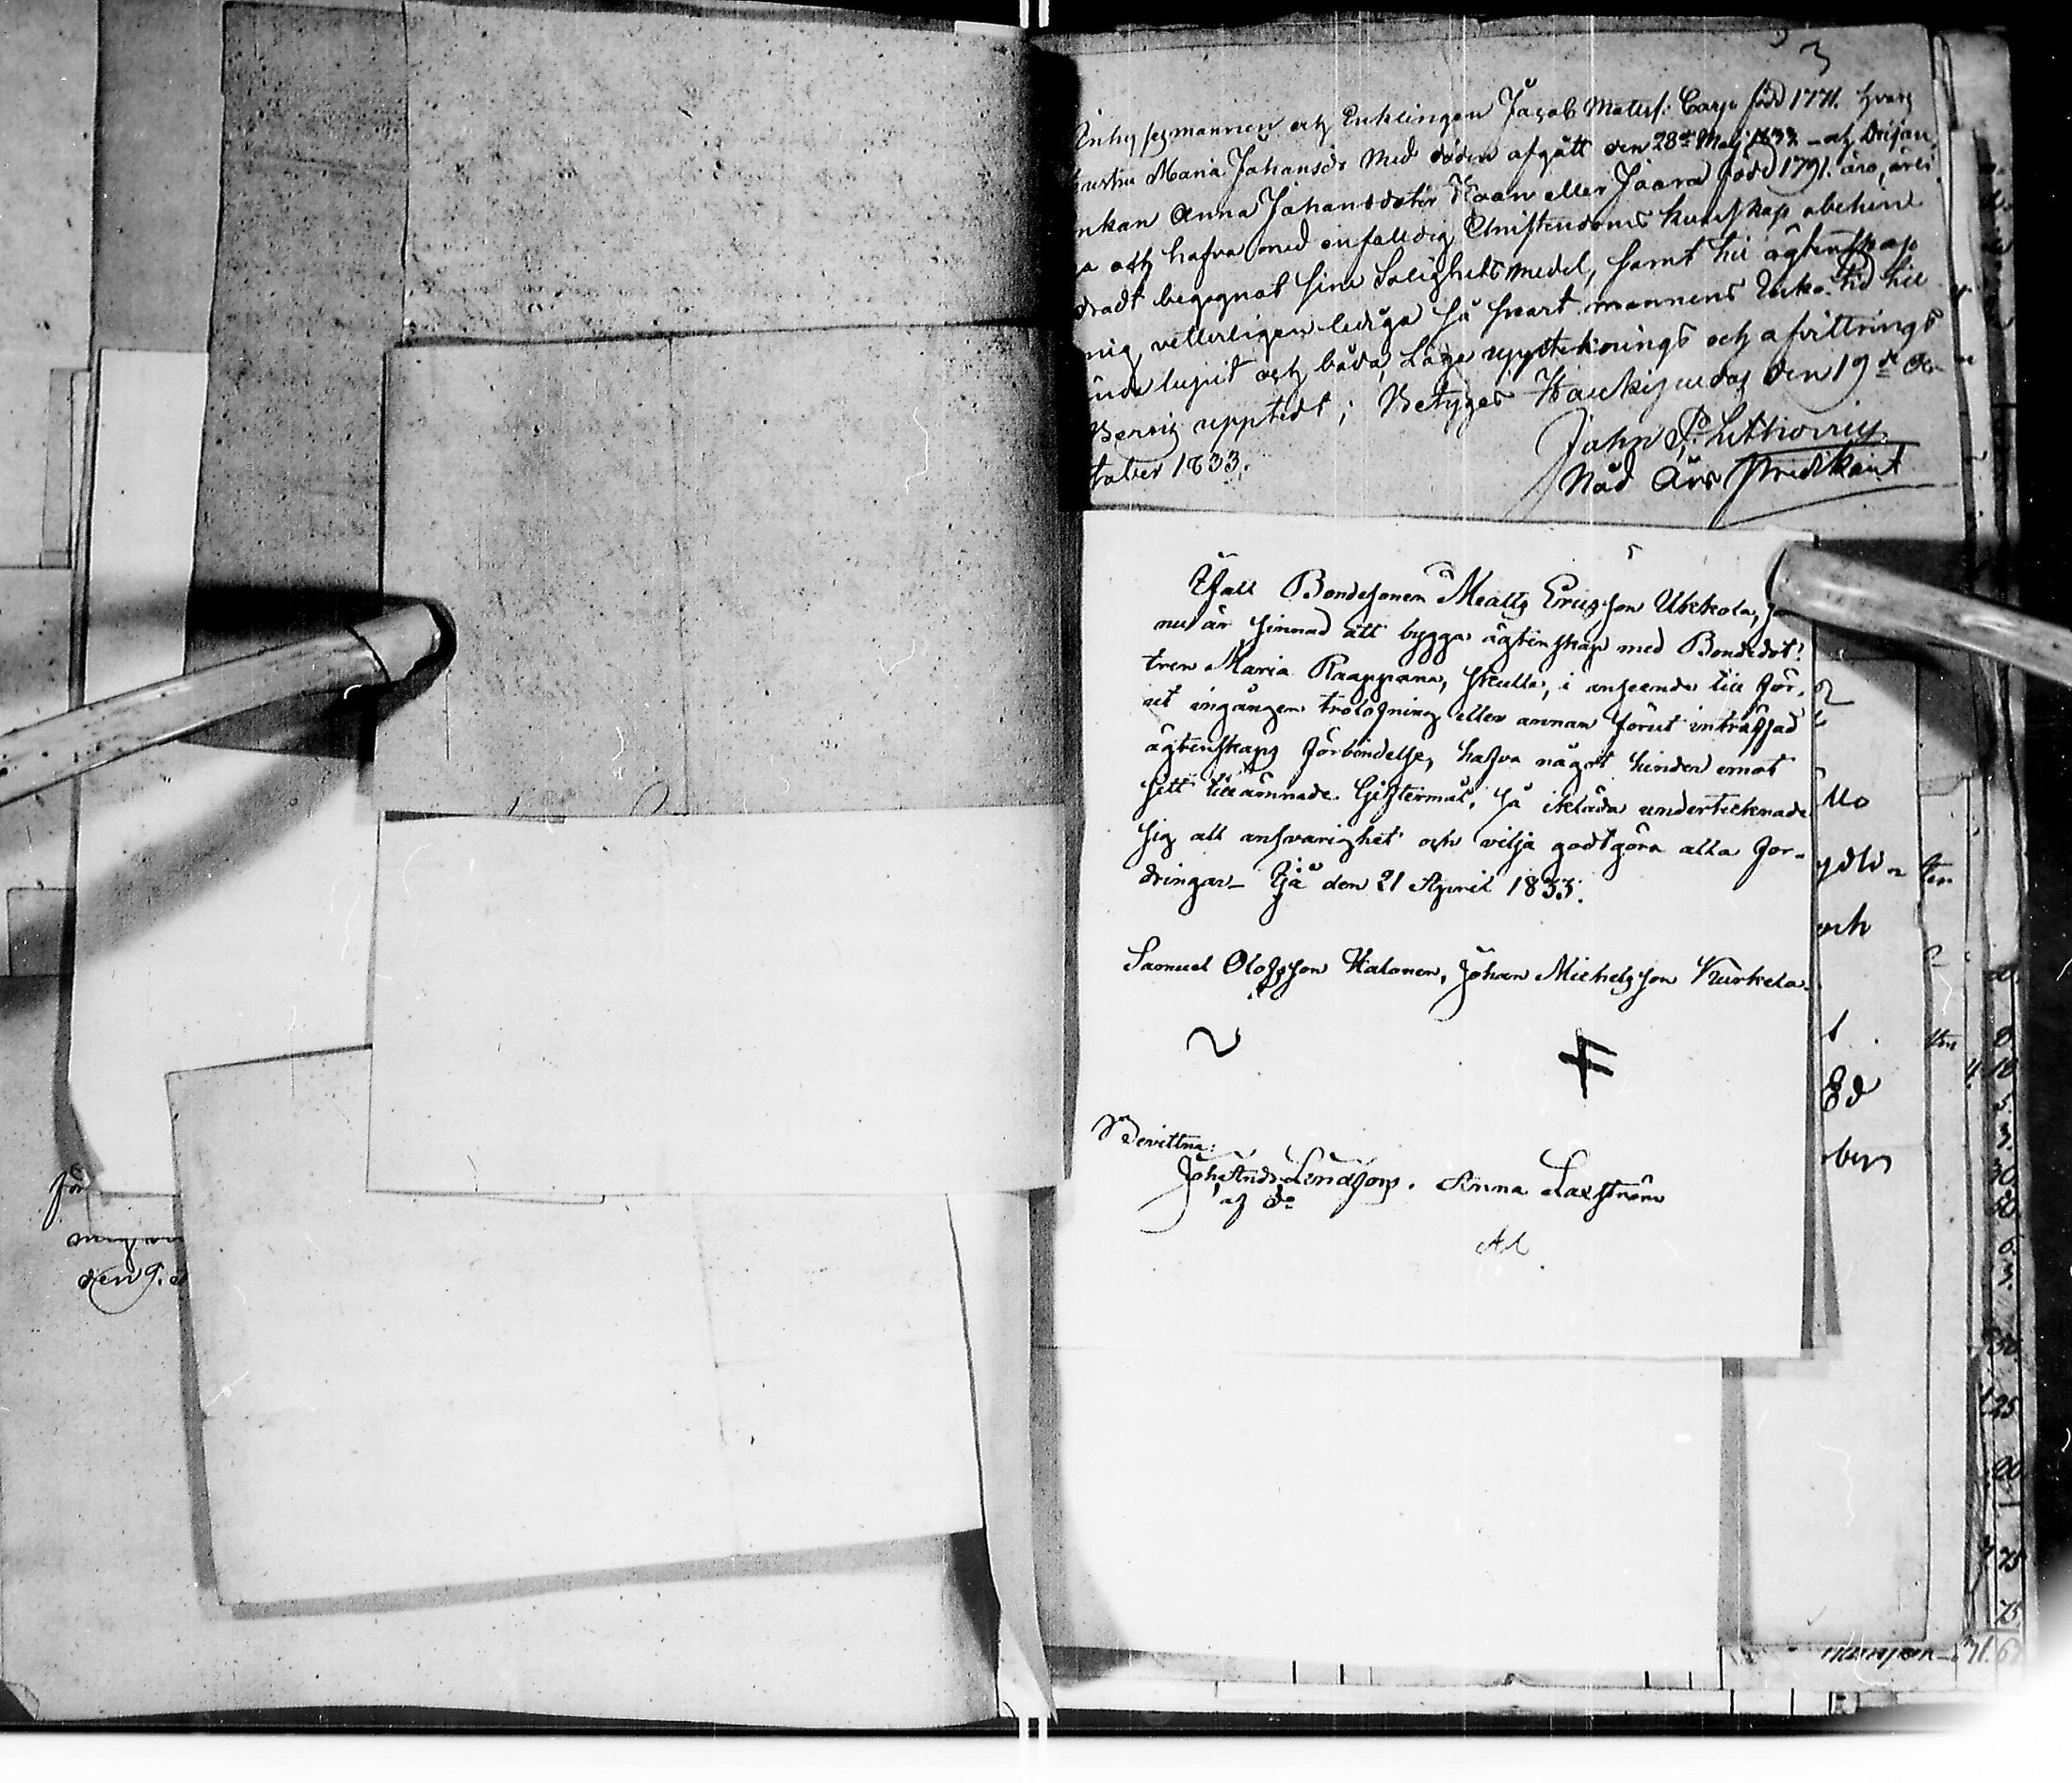 3
Inhysesmannen och Enklingen Jacob Matss: Carp född 1771. hvars
hustru Maria Johansdr Med döden afgått den 28de Maij 1833 - och Drigan,
nkan Anna Johansdotter Haan eller Jaara född 1791. äro, ärli
a och hafva med enfalldig Christendoms kunskap obehin
dradt begagnat sine Salighets medel, samt till ägtenskap
mig vetterligen lediga så snart mannens Enke-tid till
ända lupit och båda Laga upptecknings och afvittrings
Bevis upptedt; Betygas Haukipudas den 19de Oc-
tober 1833.
John P. Lithovius
Nåd Års Predikant
5
Ifall Bondesonen Matts Ericsson Ukkola, som
nu är sinnad att bygga ägtenskap med Bondedot-
tren Maria Raappana, skulle, i anseende till För-
ut ingången trolofning eller annan förut inträffad
ägtenskaps Förbindelse, hafva något hinder emot
sitt tillämnade Giftermål, så ikläda undertecknade
sig all ansvarighet och vilja godtgöra alla For-
dringar - Ijå den 21 April 1833.
Samuel Olofsson Halonen, Johan Michelsson Kurkela.
Bevittna:
Joh: Andr: Lindfors. Anna Laxström
af do
AL
llo
och
Ed
ber
för
den 9.